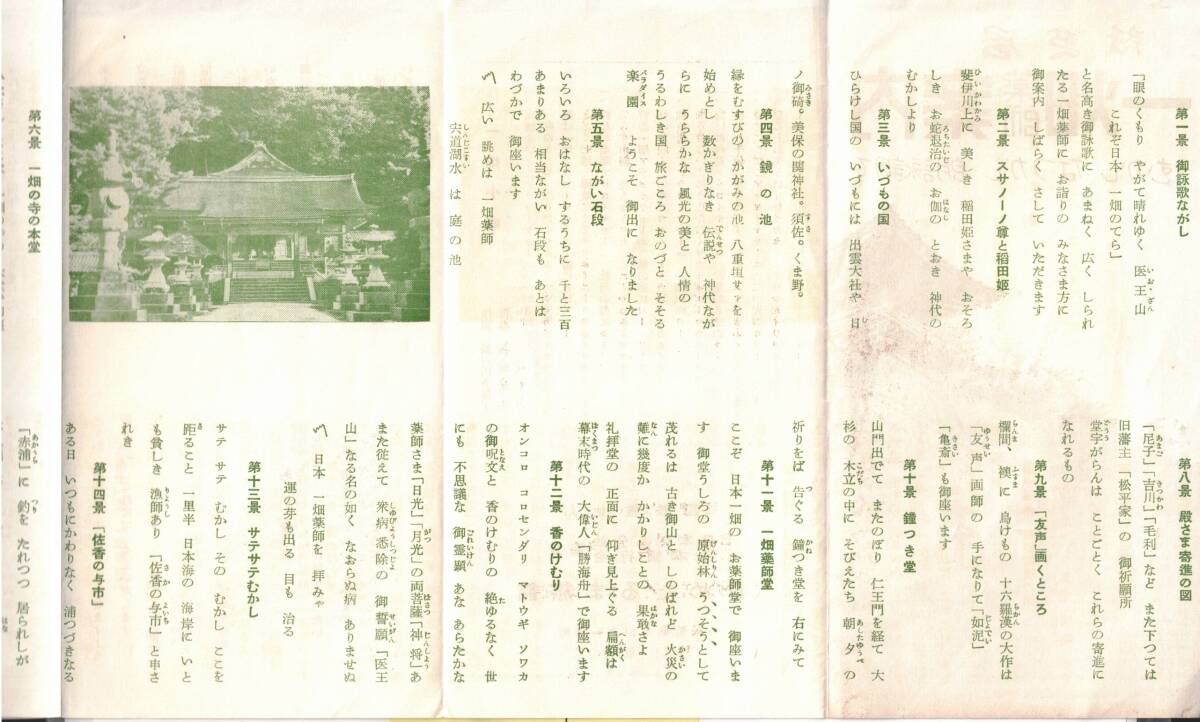 第一景 御詠歌ながし
「眼のくもり やがて晴れゆく 医王山
これぞ日本一 一畑のてら」
と名高き御詠歌に あまねく 広く しられ
たる一畑薬師に お詣りの みなさま方に
御案内 しばらく さして いただきます
第二景 スサノーノ尊と稲田姫
斐伊川上に 美しき 稲田姫さまや おそろ
しき お蛇退治の お伽の とおき 神代の
むかしより
第三景 いづもの国
ひらけし国の いづもには 出雲大社や 日
ノ御碕。美保の関神社。須佐。くま野。
第四景 鏡の池
縁をむすびの かがみの池 八重垣サマを
始めとし 数かぎりなき 伝説や 神代なが
らに うららかな 風光の美と 人情の
うるわしき国 旅ごころ おのづと そそる
楽園 ようこそ 御出に なりました
第五景 ながい石段
いろいろ おはなし するうちに 千と三百
あまりある 相当ながい 石段も あとは
わづかで 御座います
〽 広い 眺めは 一畑薬師
宍道湖水 は 庭の池
第六景 一畑の寺の本堂
第八景 殿さま寄進の図
「尼子」「吉川」「毛利」など また下つては
旧藩主 「松平家」の 御祈願所
堂宇がらんは ことごとく これらの寄進に
なれるもの
第九景 「友声」画くところ
欄間、襖に 鳥けもの 十六羅漢の大作は
「友声」画師の 手になりて「如泥」
「亀斎」も御座います
第十景 鐘つき堂
山門出でて またのぼり 仁王門を経て 大
杉の 木立の中に そびえたち 朝 夕の
祈りをば 告ぐる 鐘つき堂を 右にみて
第十一景 一畑薬師堂
ここぞ 日本一畑の お薬師堂で 御座いま
す 御堂うしろの 原始林 うつそうとして
茂れるは 古き御山と しのばれど 火災の
難に幾度か かかりしことの 果敢さよ
礼拝堂の 正面に 仰ぎ見上ぐる 扁額は
幕末時代の 大偉人「勝海舟」で御座います
第十二景 香のけむり
オンコロ コロセンダリ マトウギ ソワカ
の御呪文と 香のけむりの 絶ゆるなく 世
にも 不思議な 御霊顕 あな あらたかな
薬師さま「日光」「月光」の両菩薩「神将」あ
また従えて 衆病悉除の 御誓願「医王
山」なる名の如く なおらぬ病 ありませぬ
〽 日本 一畑薬師を 拝みゃ
運の芽も出る 目も 治る
第十三景 サテサテむかし
サテ サテ むかし その むかし ここを
距ること 一里半 日本海の 海岸に いと
も貧しき 漁師あり 「佐香の与市」と申さ
れき
第十四景 「佐香の与市」
ある日 いつもにかわりなく 浦つづきなる
「赤浦」に 釣を たれつつ 居られしが